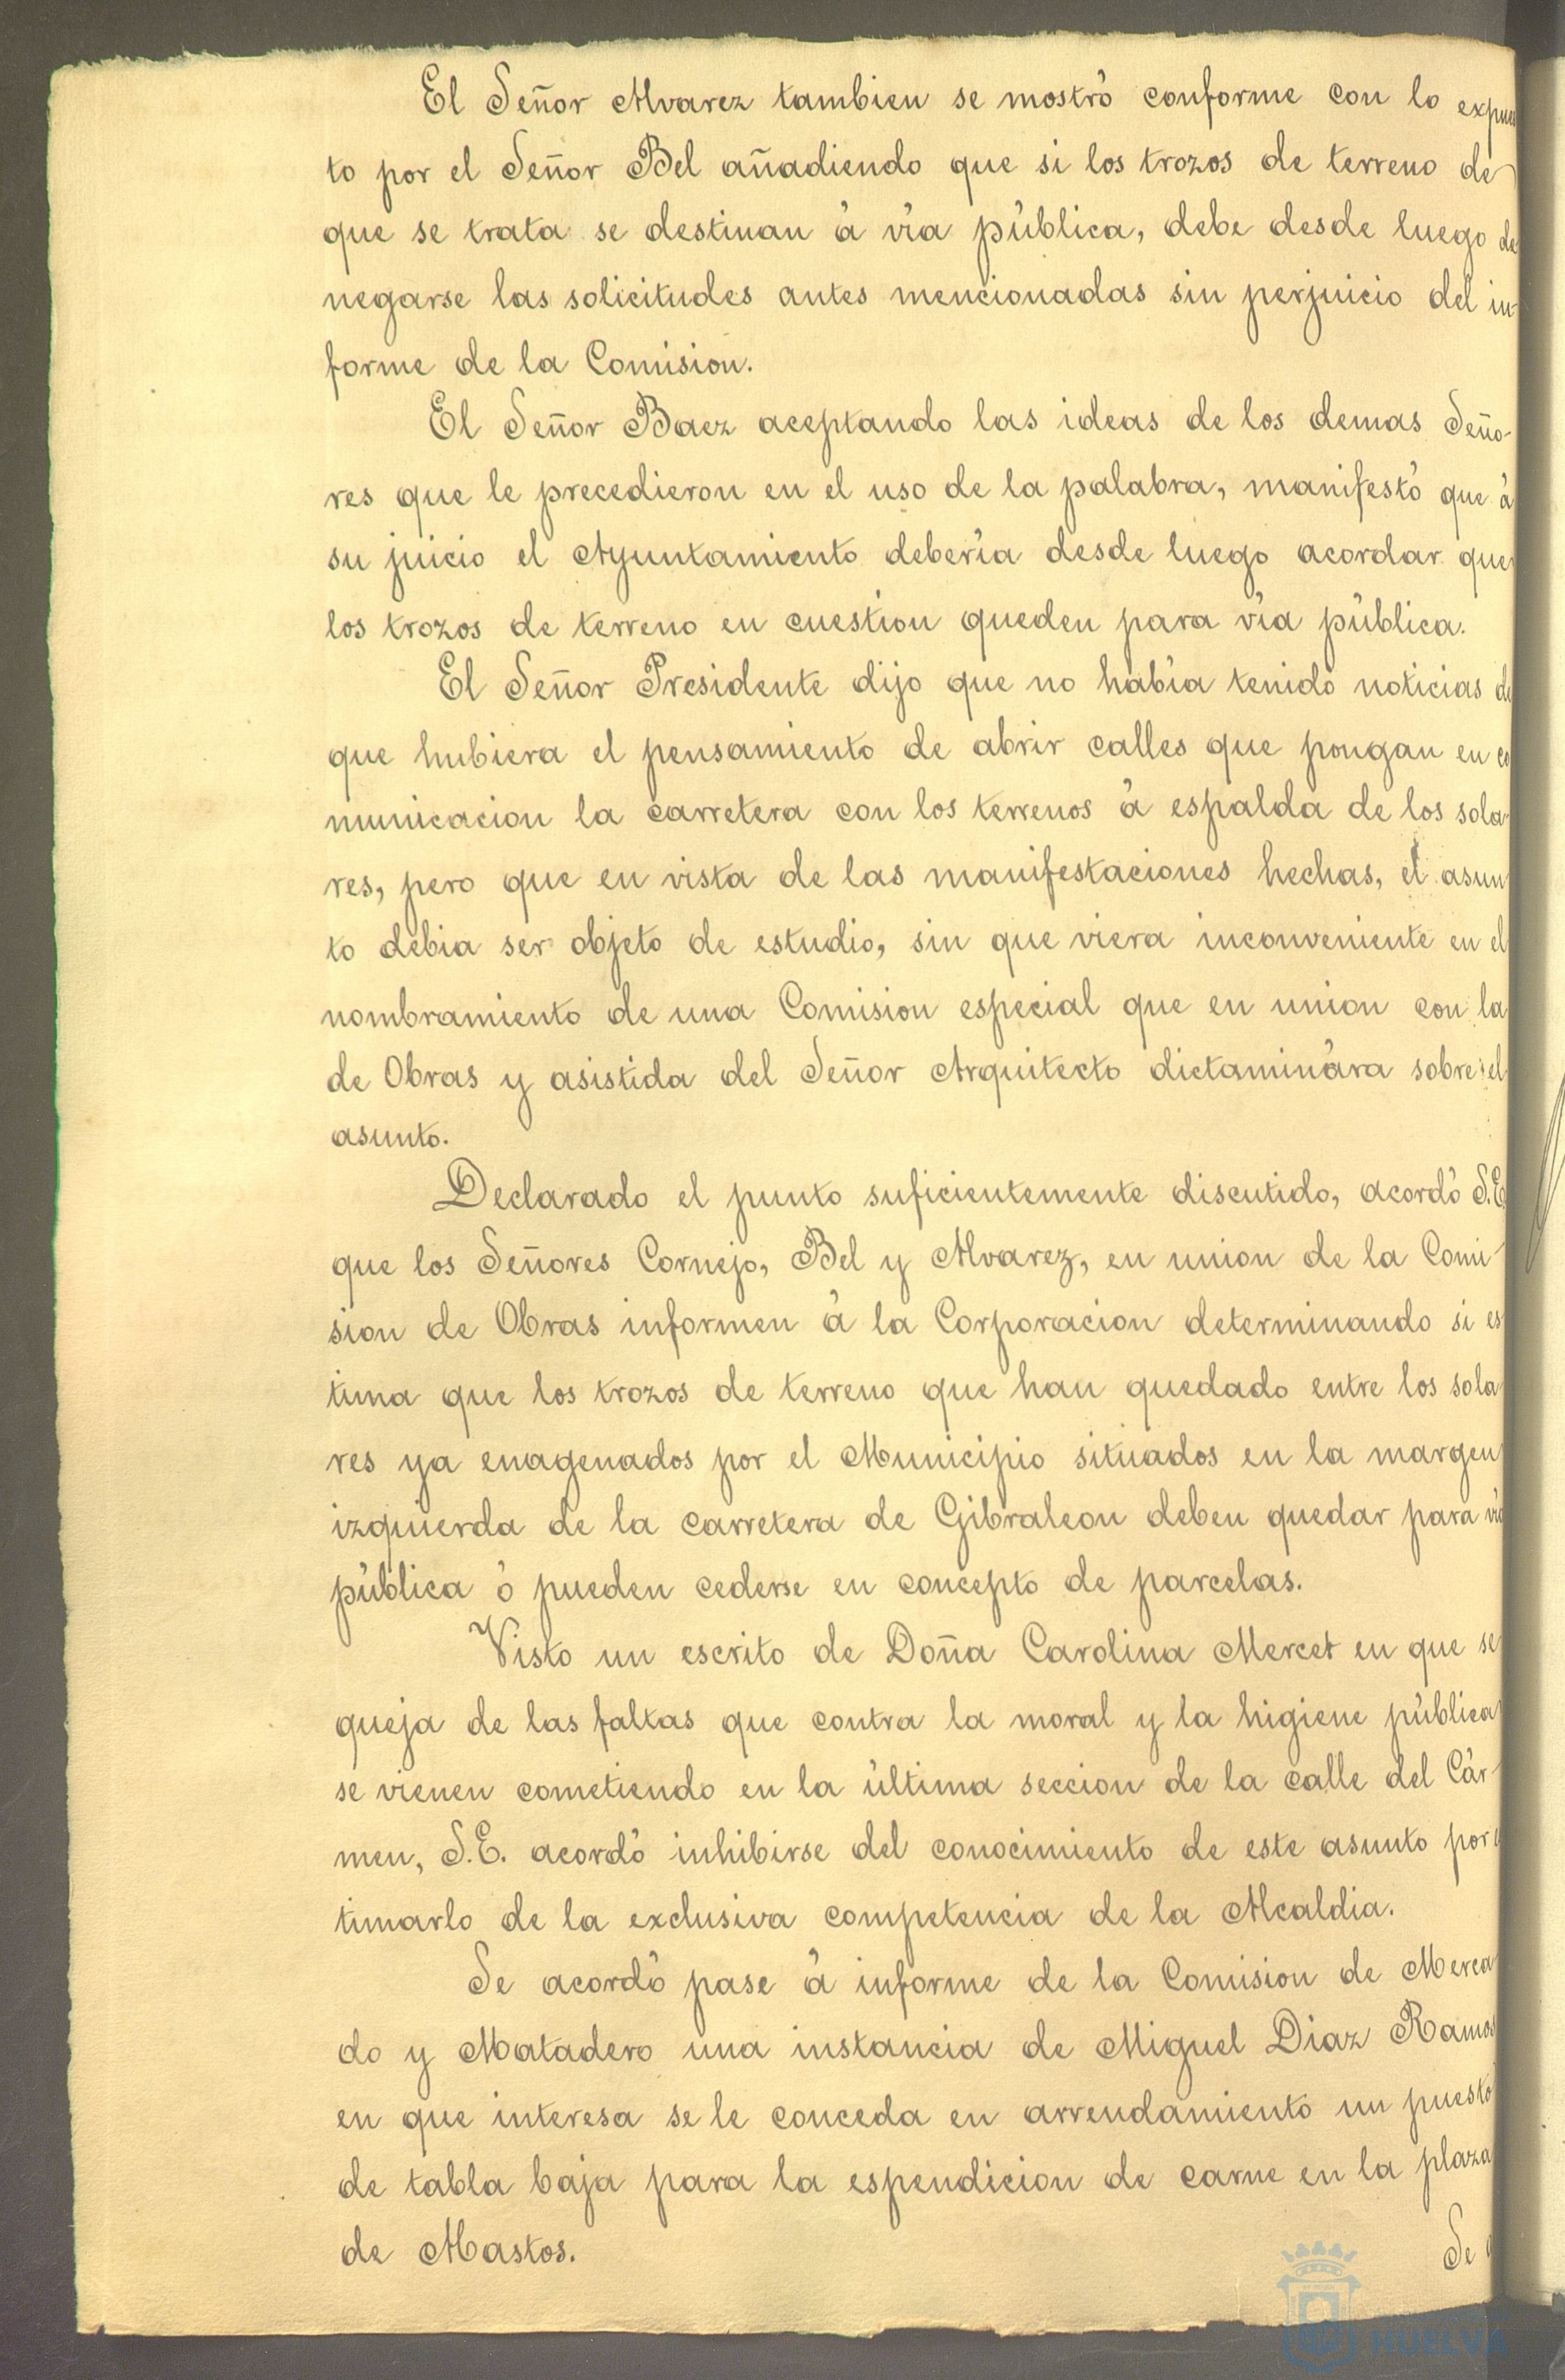 El Señor Alvarez tambien se mostró conforme con lo expues
to por el Señor Bel añadiendo que si los trozos de terreno de
que se trata se destinan á via pública, debe desde luego de
negarse las solicitudes antes mencionadas sin perjuicio del in-
forme de la Comision.
El Señor Baez aceptando las ideas de los demas Seño-
res que le precedieron en el uso de la palabra, manifestó que á
su juicio el Ayuntamiento debería desde luego acordar que
los trozos de terreno en cuestion queden para vía pública.
El Señor Presidente dijo que no había tenido noticias de
que hubiera el pensamiento de abrir calles que pongan en co
municacion la carretera con los terrenos á espalda de los sola-
res, pero que en vista de las manifestaciones hechas, el asun
to debia ser objeto de estudio, sin que viera inconveniente en el
nombramiento de una Comision especial que en union con la
de Obras y asistida del Señor Arquitecto dictaminára sobre el
asunto.
Declarado el punto suficientemente discutido, acordó S.E.
que los Señores Cornejo, Bel y Alvarez, en union de la Comi-
sion de Obras informen á la Corporacion determinando si es
tima que los trozos de terreno que han quedado entre los sola
res ya enagenados por el Municipio situados en la margen
izquierda de la carretera de Gibraleon deben quedar para via
pública ó pueden cederse en concepto de parcelas.
Visto un escrito de Doña Carolina Mercet en que se
queja de las faltas que contra la moral y la higiene pública
se vienen cometiendo en la última seccion de la calle del Cár-
men, S.E. acordó inhibirse del conocimiento de este asunto por
timarlo de la exclusiva competencia de la Alcaldia.
Se acordó pase á informe de la Comision de Merca
do y Matadero una instancia de Miguel Diaz Ramos
en que interesa se le conceda en arrendamiento un puesto
de tabla baja para la espendicion de carne en la plaza
de Abastos.
Se
HUELVA